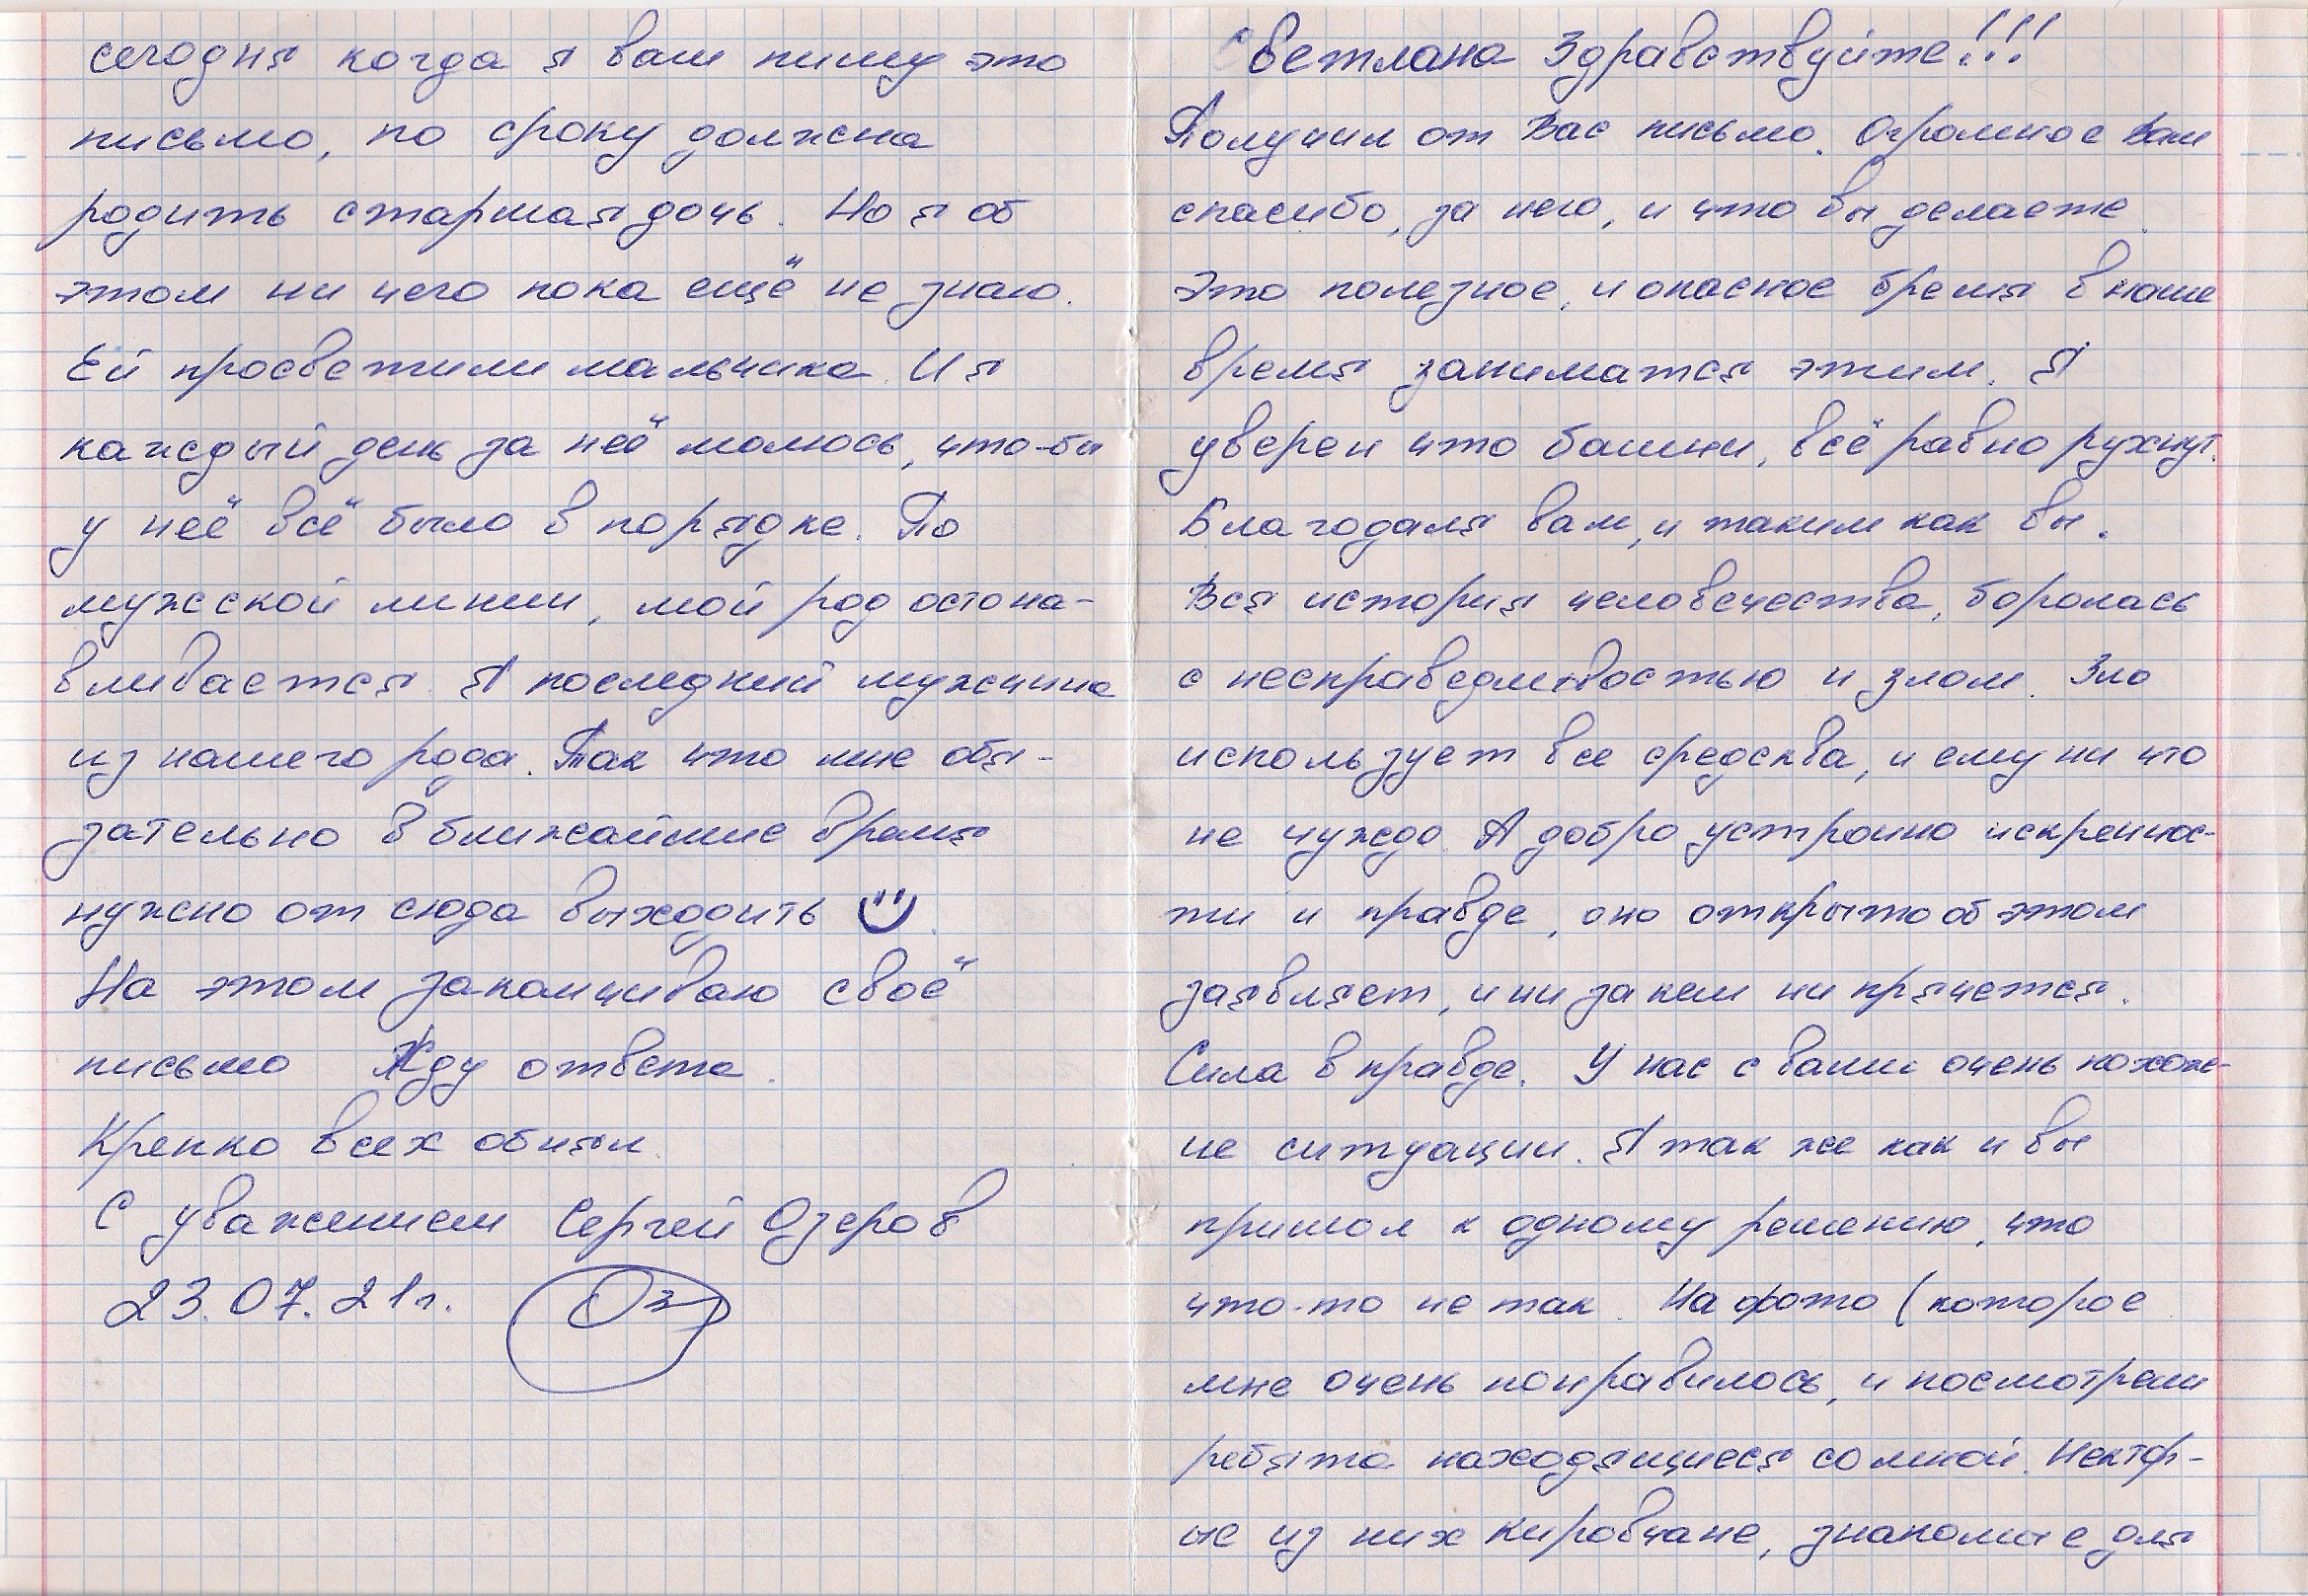 Светлана Здравствуйте!!!
Получил от Вас письмо. Огромное Вам
спасибо, за него, и что вы делаете.
Это полезное, и опасное бремя в наше
время заниматся этим. Я
уверен что башни, всё равно рухнут.
Благодаля вам, и таким как вы.
Вся история человечества, боролась
с несправедливостью и злом. Зло
использует все средсква, и ему ни что
не чуждо. А добро устроино искреннос-
ти и правде, оно открыто об этом
заявляет, и ни за кем ни прячется.
Сила в правде. У нас с вами очень похож-
ие ситуации. Я так же как и вы
пришол к одному решению, что
что-то не так. На фото (которое
мне очень понравилось, и посмотрели
ребята находящиеся со мной. Нектор-
ые из них кировчане, знакомые для
сегодня когда я вам пишу это
письмо, по сроку должна
родить старшая дочь. Но я об
этом ни чего пока ещё не знаю.
Ей просветили мальчика. И я
каждый день за неё молюсь, что-бы
у неё всё было в порядке. По
мужской линии, мой род остона-
вливается. Я последний мужчина
из нашего рода. Так что мне обя-
зательно в ближайшие время
нужно от сюда выходить
На этом заканчиваю своё
письмо Жду ответа.
Крепко всех обнял.
С уважением Сергей Озеров
23.07.21г. Оз